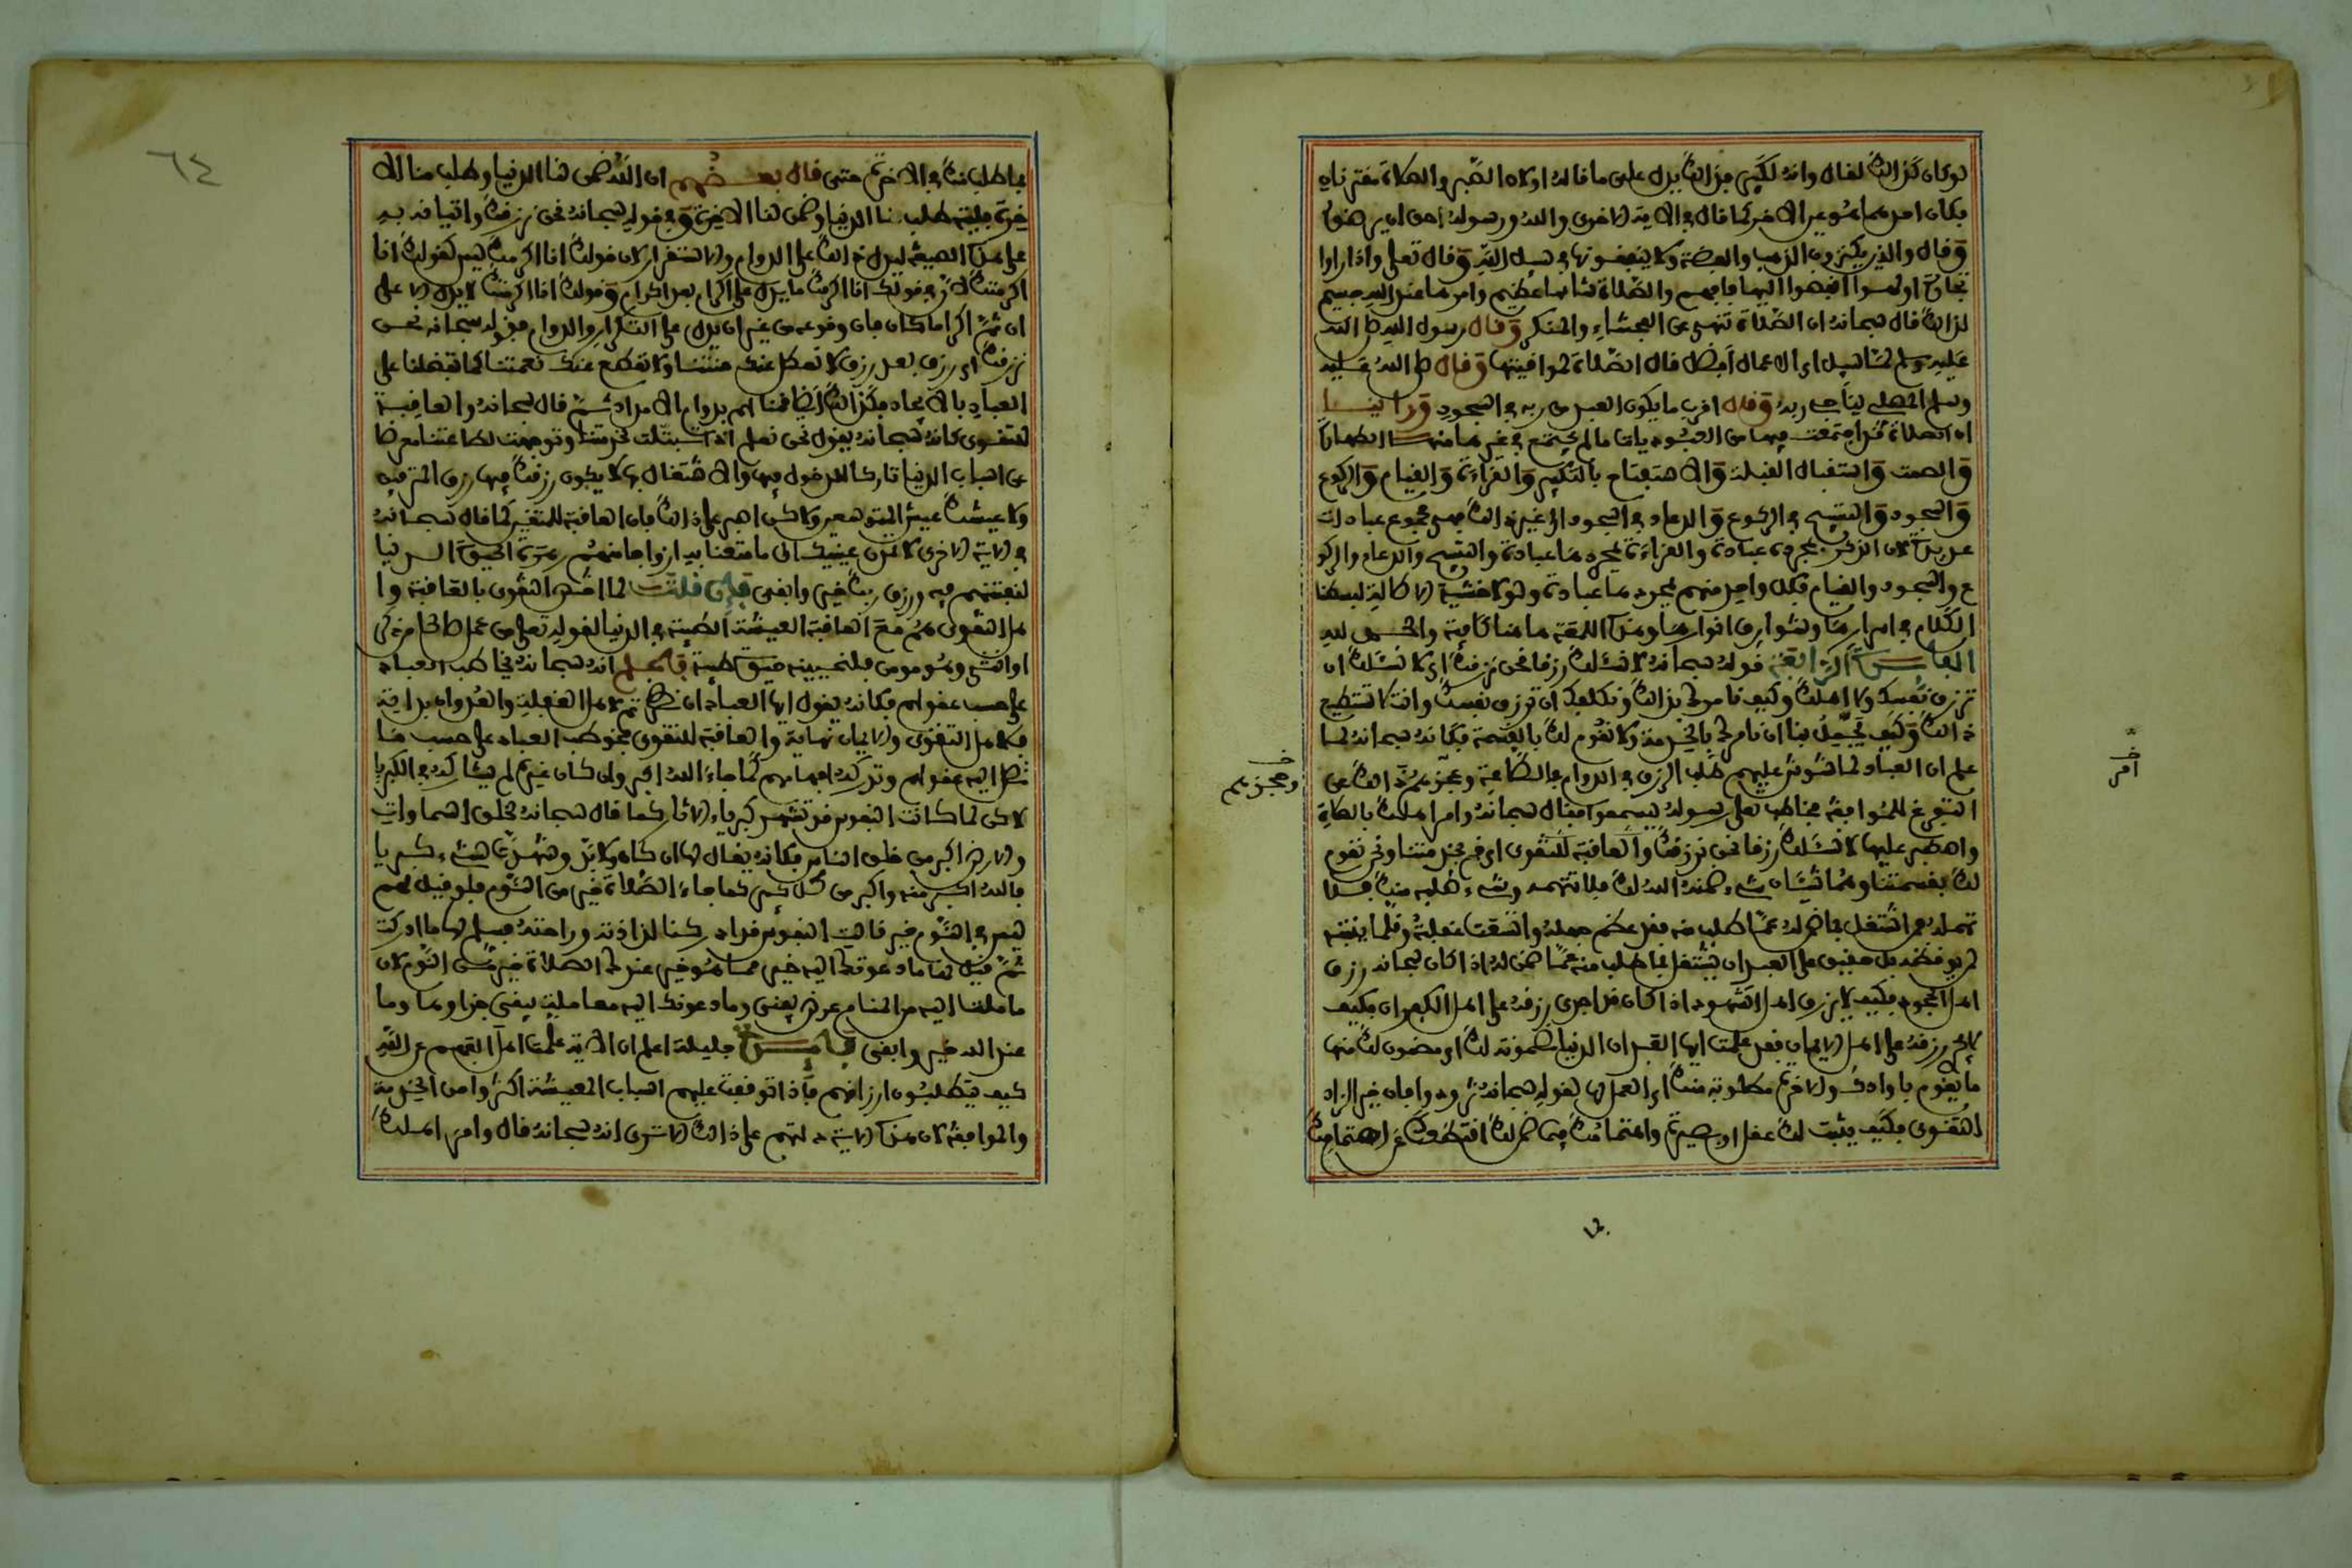 لو كان كذالك لقال وانه لكبير فذالك يدل على ما قالوا ولان الصبر والصلاة مقترنان
فكان احدهما هو عين الاخر كما قال في الاية الاخرى والله ورسوله احق ان يرضوه
وقال والذين يكنزون الذهب والفضة ولا ينفقونها في سبيل الله وقال تعلى واذا راوا
تجارة او لهوا انفضوا اليها فافهم والصلاة شانها عظيم وامرها عند الله جسيم
لذالك قال سبحانه ان الصلاة تنهى عن الفحشاء والمنكر وقال رسول الله صلى الله
عليه وسلم لما سيل اي الاعمال افضل قال الصلاة لمواقيتها وقال صلى الله عليه
وسلم المصلي يناجي ربه وقال اقرب ما يكون العبد من ربه في السجود وراينا
ان الصلاة قد اجتمعت فيها من العبودية ما لم يجتمع في غيرها منها الطهارة
والصمت واستقبال القبلة والاستفتاح بالتكبير والقراءة والقيام والركوع
والسجود والتسبيح في الركوع والدعاء في السجود الى غير ذالك فهي مجموع عبادات
عديدة لان الذكر بمجرده عبادة والقراءة بمجردها عبادة والتسبيح والدعاء والركو
ع والسجود والقيام فكل واحد منهم بمجرده عبادة ولولا خشية الاطالة لبسطنا
الكلام في اسرارها وشوارق انوارها وهذه اللمعة هاهنا كافية والحمد لله
الفايدة الرابعة قوله سبحانه لا نسئلك رزقا نحن نرزقك اي لا نسئلك ان
ترزق نفسك ولا اهلك وكيف نامرك بذالك ونكلفك ان ترزق نفسك وانت لا تستطيع
ذالك وكيف يجمل بنا ان نامرك بالخدمة ولا نقوم لك بالقسمة فكانه سبحانه لما
علم ان العباد ربما شوش عليهم طلب الرزق في الدوام على الطاعة وحجزهم ذالك عن
التفرغ للموافقة فخاطب تعلى رسوله ليسمعوا فقال سبحانه وامر اهلك بالصلاة
واصطبر عليها لا نسئلك رزقا نحن نرزقك والعاقبة للتقوى اي قم بخدمتنا ونحن نقوم
لك بقسمتنا وهما شيئان شيء ضمنه الله لك فلا تتهمه وشيء طلبه منك فلا
تهمله فمن اشتغل بما ضمن له عما طلب منه فقد عظم جهله واتسعت غفلته وقلما ينتبه
لمن يوقظه بل حقيق على العبد ان يشتغل بما طلب منه عما ضمن له اذا كان سبحانه رزق
اهل الجحود فكيف لا يرزق اهل الشهود اذا كان قد اجرى رزقه على اهل الكفران فكيف
لا يجري رزقه على اهل الايمان فقد علمت ايها العبد ان الدنيا مضمونة لك اي مضمون لك منها
ما يقوم باودك والاخرة مطلوبة منك اي العمل لها لقوله سبحانه تزودوا فان خير الزاد
التقوى فكيف يثبت لك عقل او بصيرة واهتمامك فيما ضمن لك اقتطعك عن اهتمامك
وحجزهم
امر
٦٤
بما طلب منك في الاخرة حتى قال بعضهم ان الله ضمن لنا الدنيا وطلب منا الا
خرة فليته طلب منا الدنيا وضمن لنا الاخرة وفي قوله سبحانه نحن نرزقك واتيانه به
على هذه الصيغة ليدل ذالك على الدوام والاستقرار لان قولك انا اكرمك ليس كقولك انا
اكرمتك لان في قولك انا اكرمك ما يدل على اكرام بعد اكرام وقولك انا اكرمتك لا يدل الا على
ان ثم اكراما كان فان وقوعه من غير ان يدل على التكرار والدوام فقوله سبحانه نحن
نرزقك اي رزق بعد رزق لا نعطل عنك منتنا ولا نقطع عنك نعمتنا كما تفضلنا على
العباد بالايجاد فكذالك ايضا قمنا لهم بدوام الامداد ثم قال سبحانه والعاقبة
للتقوى كانه سبحانه يقول نحن نعلم اذا تبتلت لخدمتنا وتوجهت لطاعتنا معرضا
عن اسباب الدنيا تاركا للدخول فيها والاشتغال بها لا يكون رزقك فيها رزق المترفين
ولا عيشك عيش المتوسعين ولاكن اصبر على ذالك فان العاقبة للمتقين كما قال سبحانه
في الاية الاخرى لا تمدن عينيك الى ما متعنا به ازواجا منهم زهرة الحيوة الدنيا
لنفتنهم فيه ورزق ربك خير وابقى فان قلت لما خص التقوى بالعاقبة وا
هل التقوى لهم مع العاقبة العيشة الطيبة في الدنيا لقوله تعلى من عمل صالحا من ذكر
او انثى وهو مومن فلنحيينه حيوة طيبة فاعلم انه سبحانه يخاطب العباد
على حسب عقولهم فكانه يقول ايها العباد ان نظرتم لاهل الغفلة والعدوان بداية
فلاهل التقوى والايمان نهاية والعاقبة للتقوى فخوطب العباد على حسب ما
تصل اليه عقولهم وتدركه افهامهم كما جاء الله اكبر وان كان غيره لم يشاركه في الكبريا
لاكن لما كانت النفوس قد تشهد كبرياء الاثار كما قال سبحانه لخلق السماوات
والارض اكبر من خلق الناس فكانه يقال لها ان كان ولا بد وتشهدي لشيء كبريا
فالله اكبر منه واكبر من كل كبير كما جاء الصلاة خير من النوم فلو قيل لهم
ليس في النوم خير قالت النفوس قد ادركنا لذاذته وراحته فسلم لها ما ادركت
ثم قيل لها ما دعوتك اليه خير مما هو خير عندك الصلاة خير من النوم لان
ما ملت اليه من المنام عرض يفنى وما دعوتك اليه معاملة يبقى جزاوها وما
عند الله خير وابقى فايدة جليلة اعلم ان الاية علمت اهل الفهم عن الله
كيف يطلبون ارزاقهم فاذا توقفت عليهم اسباب المعيشة اكثروا من الخدمة
والموافقة لان هذه الاية دلتهم على ذالك الا ترى انه سبحانه قال وامر اهلك